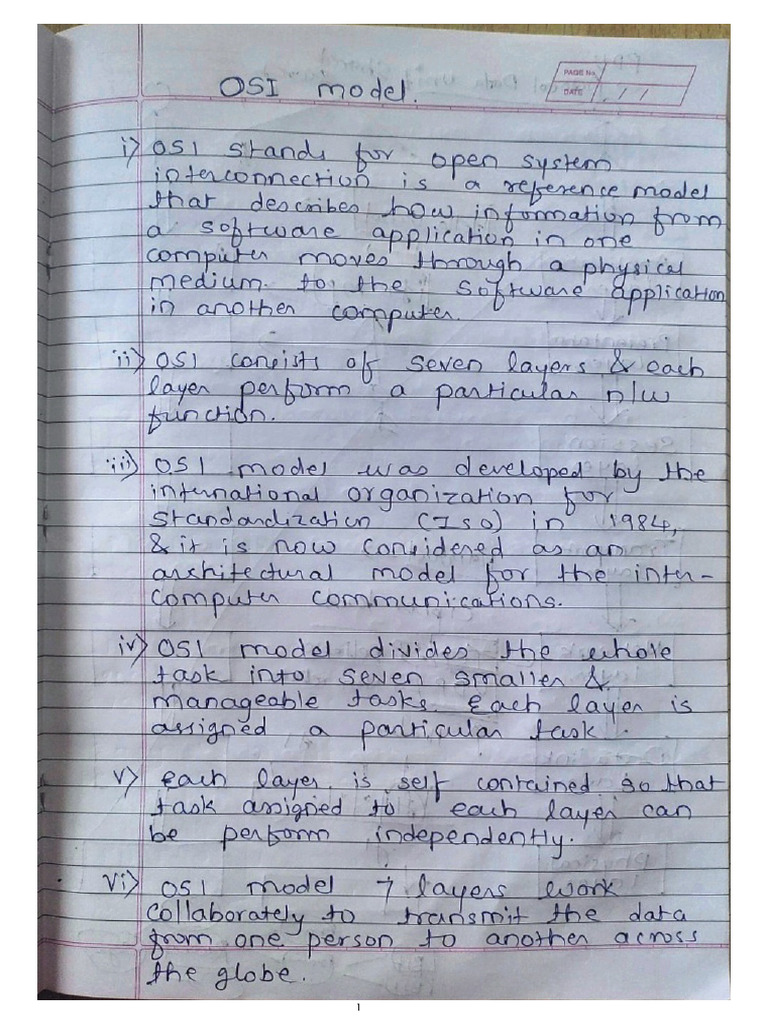 OSI model.
PAGE No.
DATE / /
i) OSI stands for open system
interconnection is a reference model
that describes how information from
a software application in one
computer moves through a physical
medium to the software application
in another computer.
ii) OSI consists of seven layers & each
layer perform a particular n/w
function.
iii) OSI model was developed by the
international organization for
standardization (ISO) in 1984,
& it is now considered as an
architectural model for the inter-
computer communications.
iv) OSI model divides the whole
task into seven smaller &
manageable tasks. Each layer is
assigned a particular task.
v) each layer is self contained so that
task assigned to each layer can
be perform independently.
vi) OSI model 7 layers work
collaborately to transmit the data
from one person to another across
the globe.
1